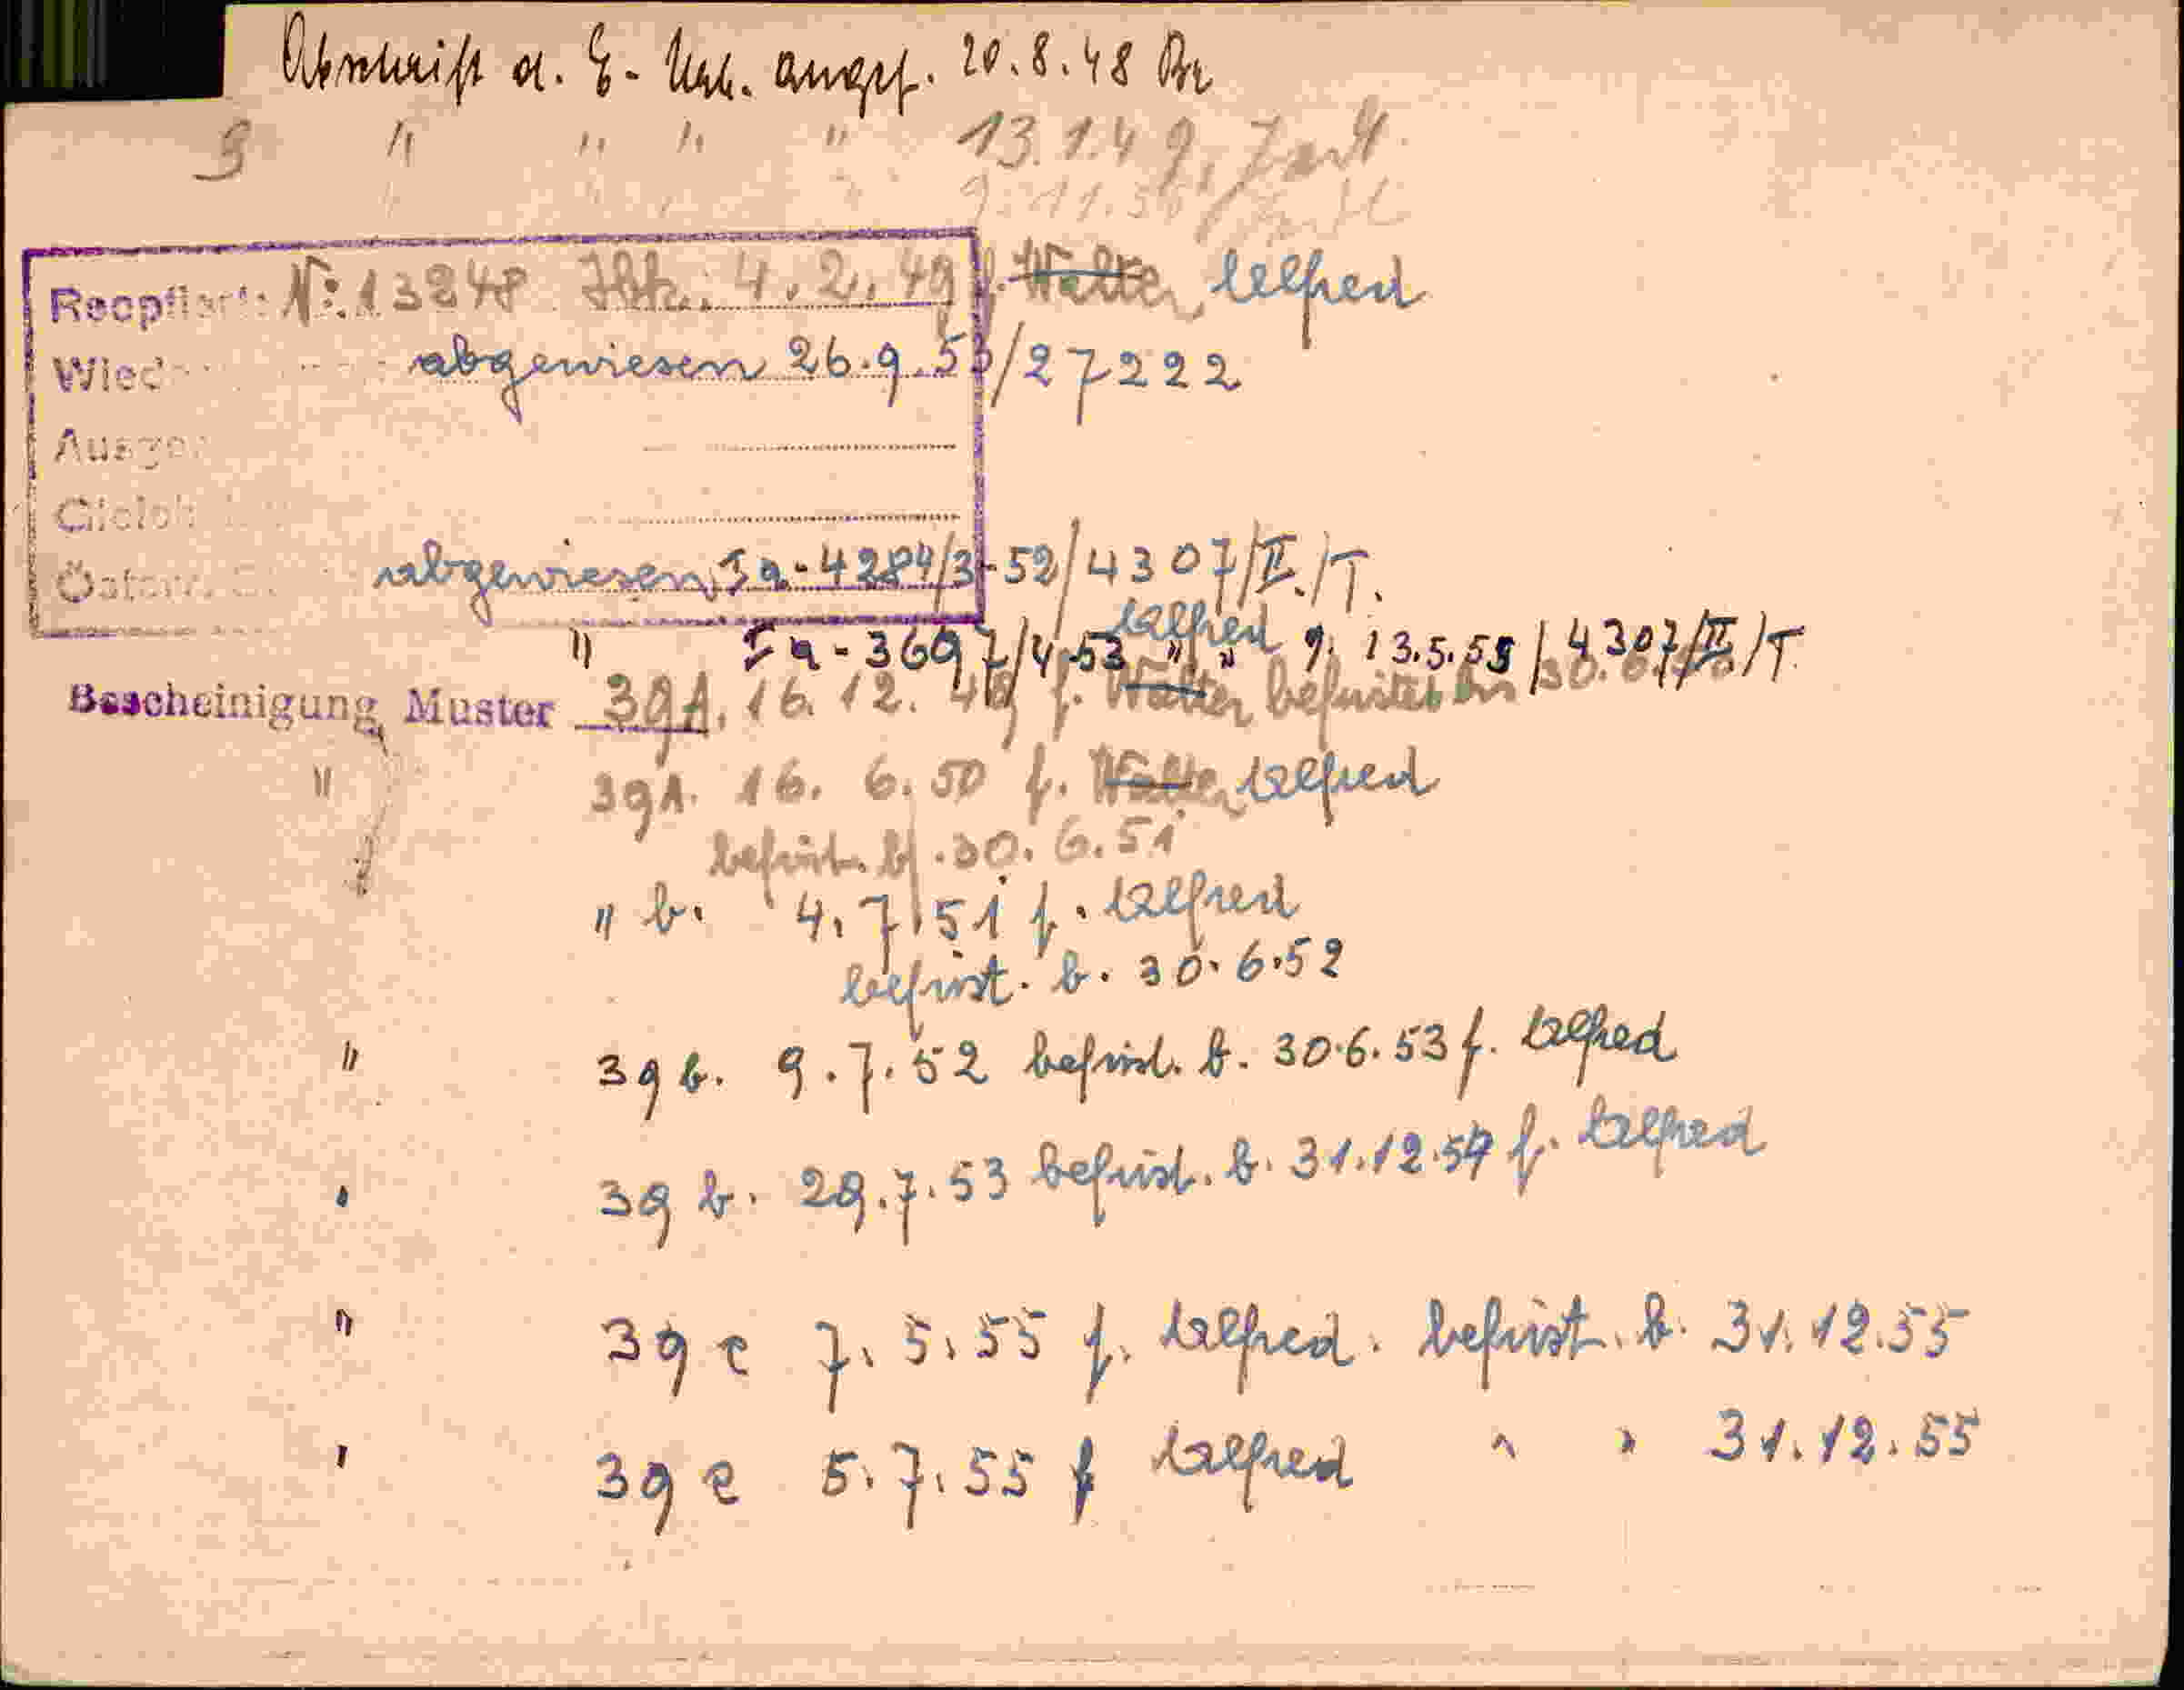 Abschrift d. E- Urk. angef. 20.8.48 Br
3 " " " " 13.1.49,
9.11.
Nr. 13248 4.2.49 f. Walter, Alfred
Wied abgewiesen 26.9.53/27222
Ausge
Gleich
Österr. abgewiesen, Ia-4284/3-52/4307/II./T.
Alfred
" Ia-3697/4-53 " " 9. 13.5.55/4307/II/T.
Bescheinigung Muster 39A, 16. 12. f. Walter befristet bis 30.
" 39A. 16. 6. 50 f. Walter, Alfred
befrist. bis 30. 6. 51
" b. 4.7.51 f. Alfred
befrist. b. 30.6.52
" 39 b. 9.7.52 befrist. b. 30.6.53 f. Alfred
" 39 b. 29.7.53 befrist. b. 31.12.54 f. Alfred
" 39 e 7.5.55 f. Alfred. befrist. b. 31.12.55
" 39 e 5.7.55 f Alfred " " 31.12.55